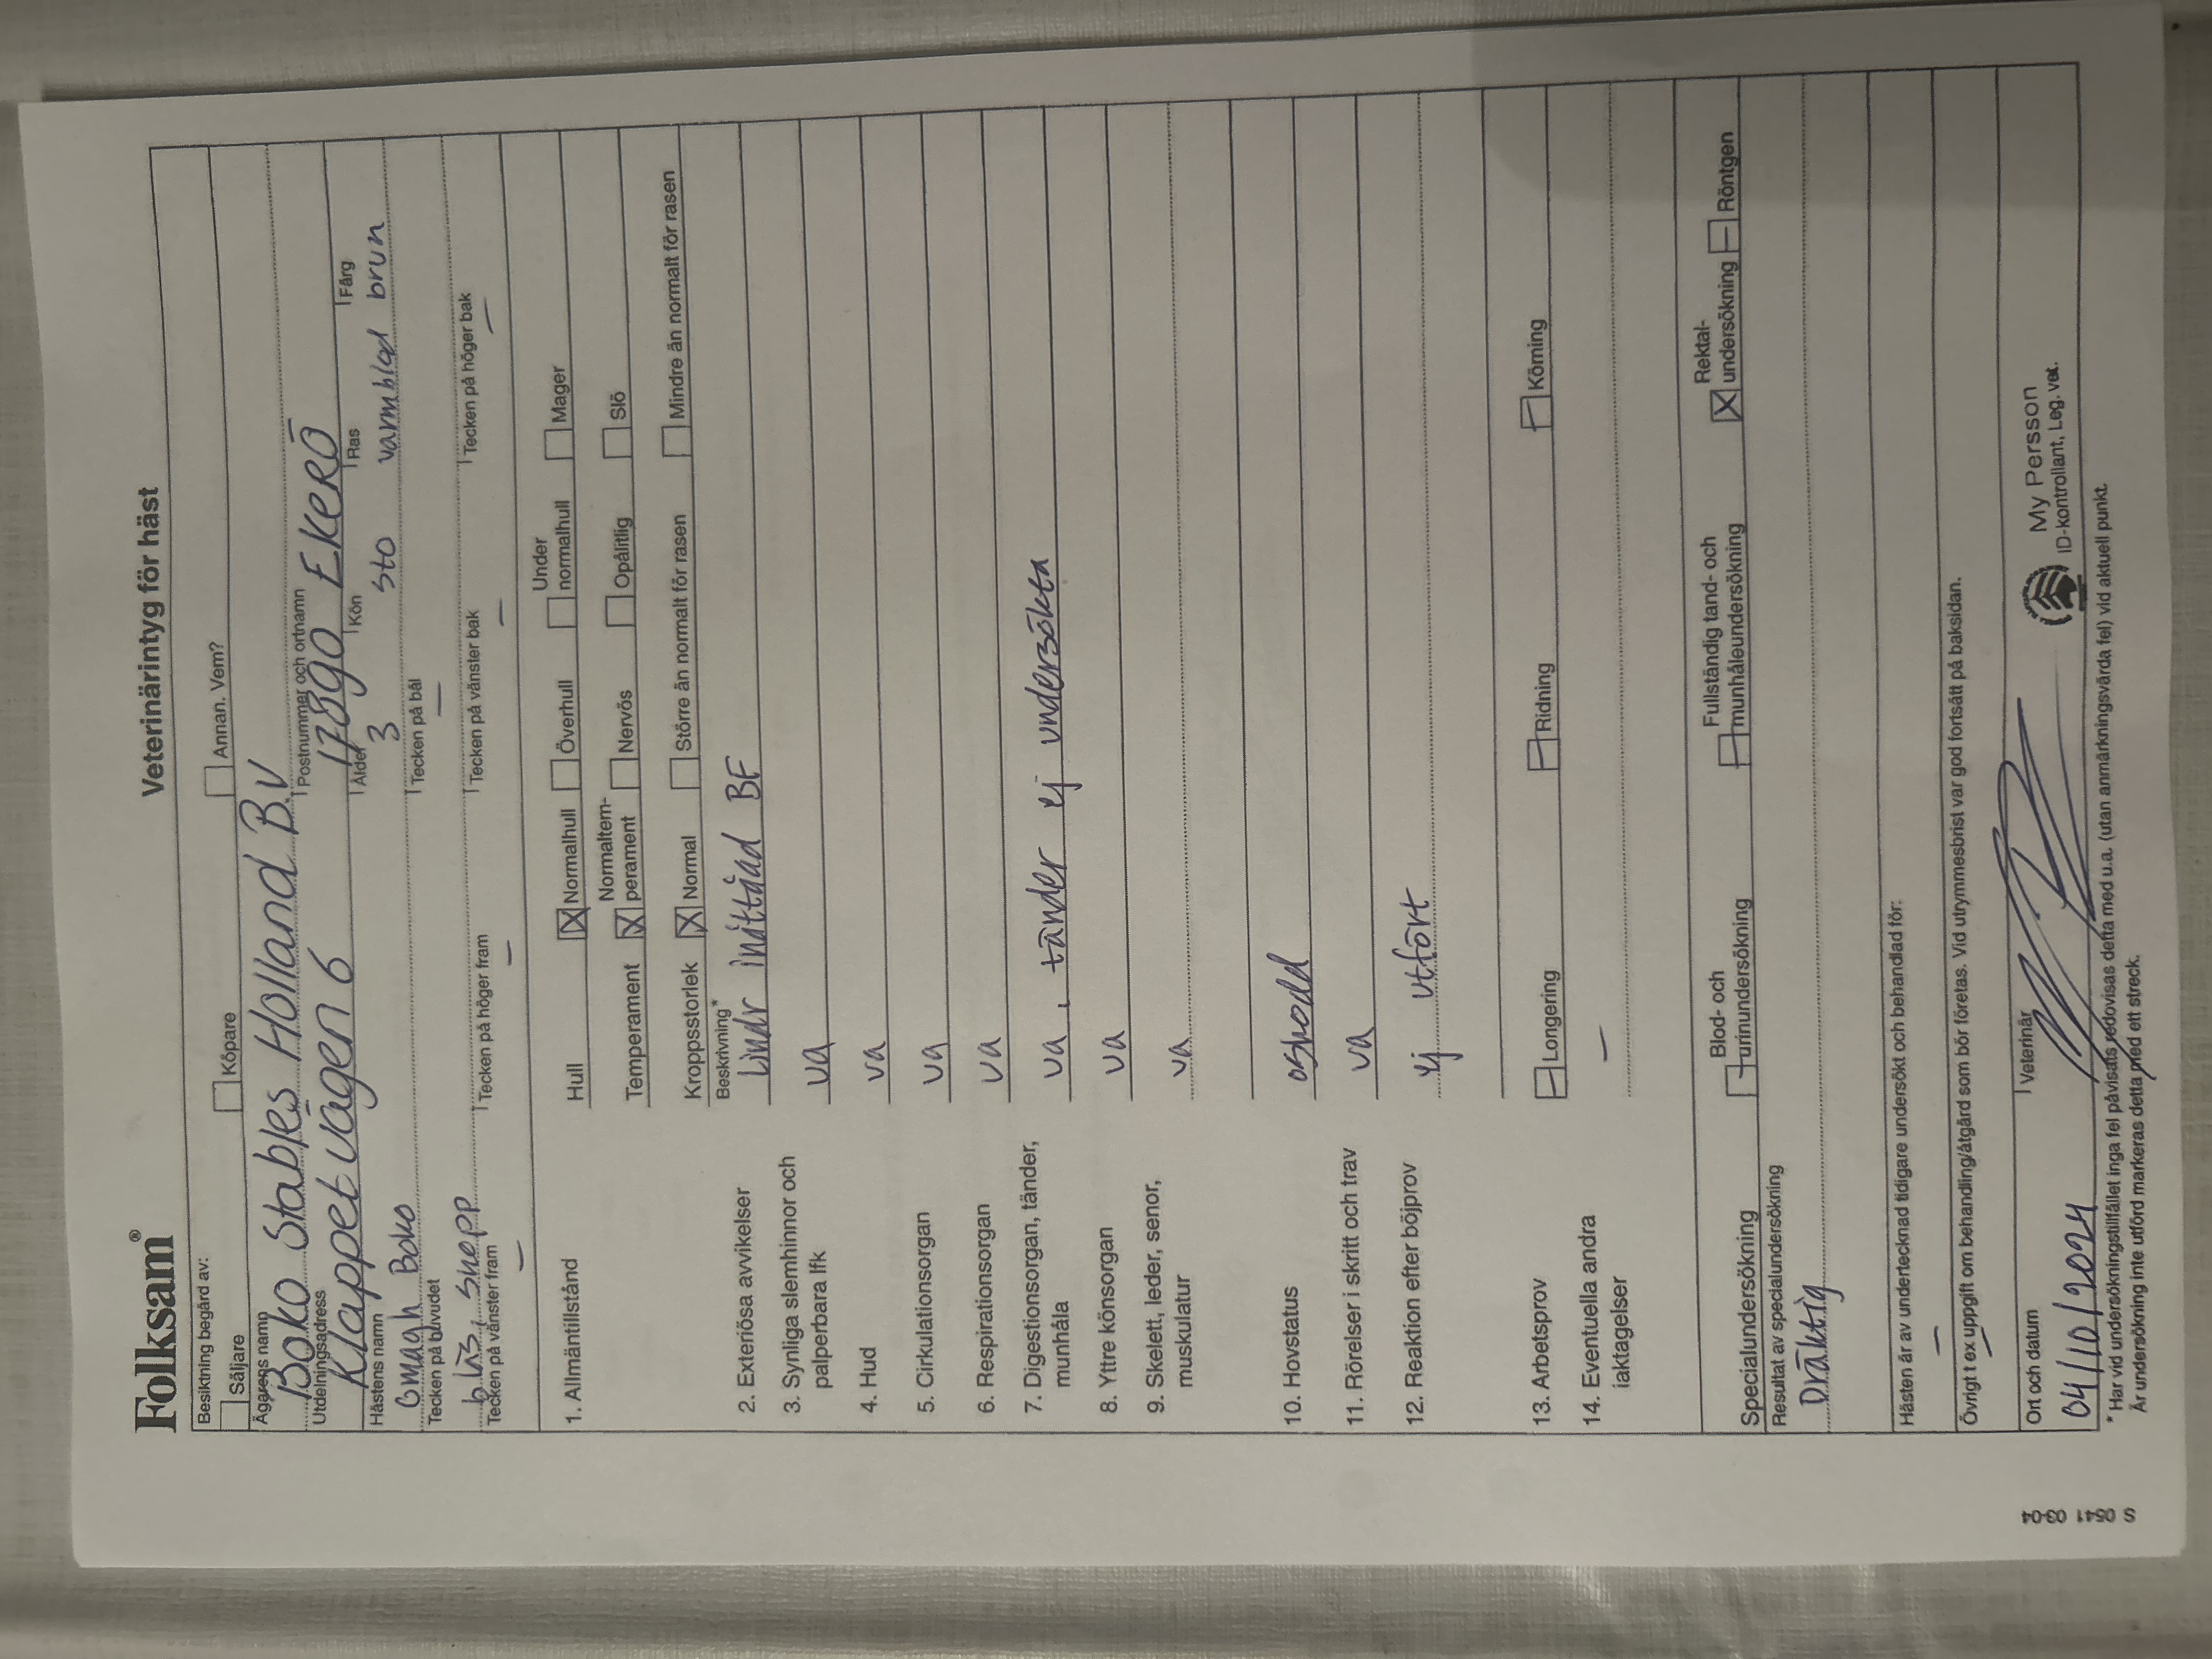 Folksam®
Veterinärintyg för häst
Besiktning begärd av:
Säljare Köpare Annan. Vem?
Ägarens namn
Boko Stables Holland B.V
Utdelningsadress Postnummer och ortnamn
Klappetvägen 6 17890 Ekerö
Hästens namn Ålder Kön Ras Färg
Omagh Boko 3 sto varmblod brun
Tecken på huvudet Tecken på bål
bläs, snepp —
Tecken på vänster fram Tecken på höger fram Tecken på vänster bak Tecken på höger bak
— — — —
1. Allmäntillstånd Hull X Normalhull Överhull Under normalhull Mager
Temperament X Normaltem-perament Nervös Opålitlig Slö
Kroppsstorlek X Normal Större än normalt för rasen Mindre än normalt för rasen
Beskrivning*
2. Exteriösa avvikelser Lindr inåttåad BF
3. Synliga slemhinnor och palperbara lfk ua
4. Hud ua
5. Cirkulationsorgan ua
6. Respirationsorgan ua
7. Digestionsorgan, tänder, munhåla ua, tänder ej undersökta
8. Yttre könsorgan ua
9. Skelett, leder, senor, muskulatur ua
10. Hovstatus oskodd
11. Rörelser i skritt och trav ua
12. Reaktion efter böjprov ej utfört
13. Arbetsprov — Longering — Ridning — Körning
14. Eventuella andra iaktagelser —
Specialundersökning — Blod- och urinundersökning — Fullständig tand- och munhåleundersökning X Rektal-undersökning — Röntgen
Resultat av specialundersökning
Dräktig
Hästen är av undertecknad tidigare undersökt och behandlad för:
—
Övrigt t ex uppgift om behandling/åtgärd som bör företas. Vid utrymmesbrist var god fortsätt på baksidan.
—
Ort och datum Veterinär
04/10/2024
My Persson
ID-kontrollant, Leg. vet.
* Har vid undersökningstillfället inga fel påvisats redovisas detta med u.a. (utan anmärkningsvärda fel) vid aktuell punkt.
Är undersökning inte utförd markeras detta med ett streck.